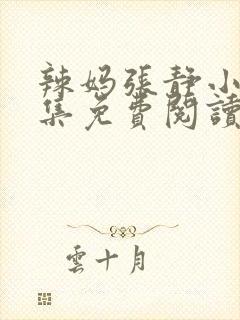 辣妈張静小
集免費閱讀
雲十月